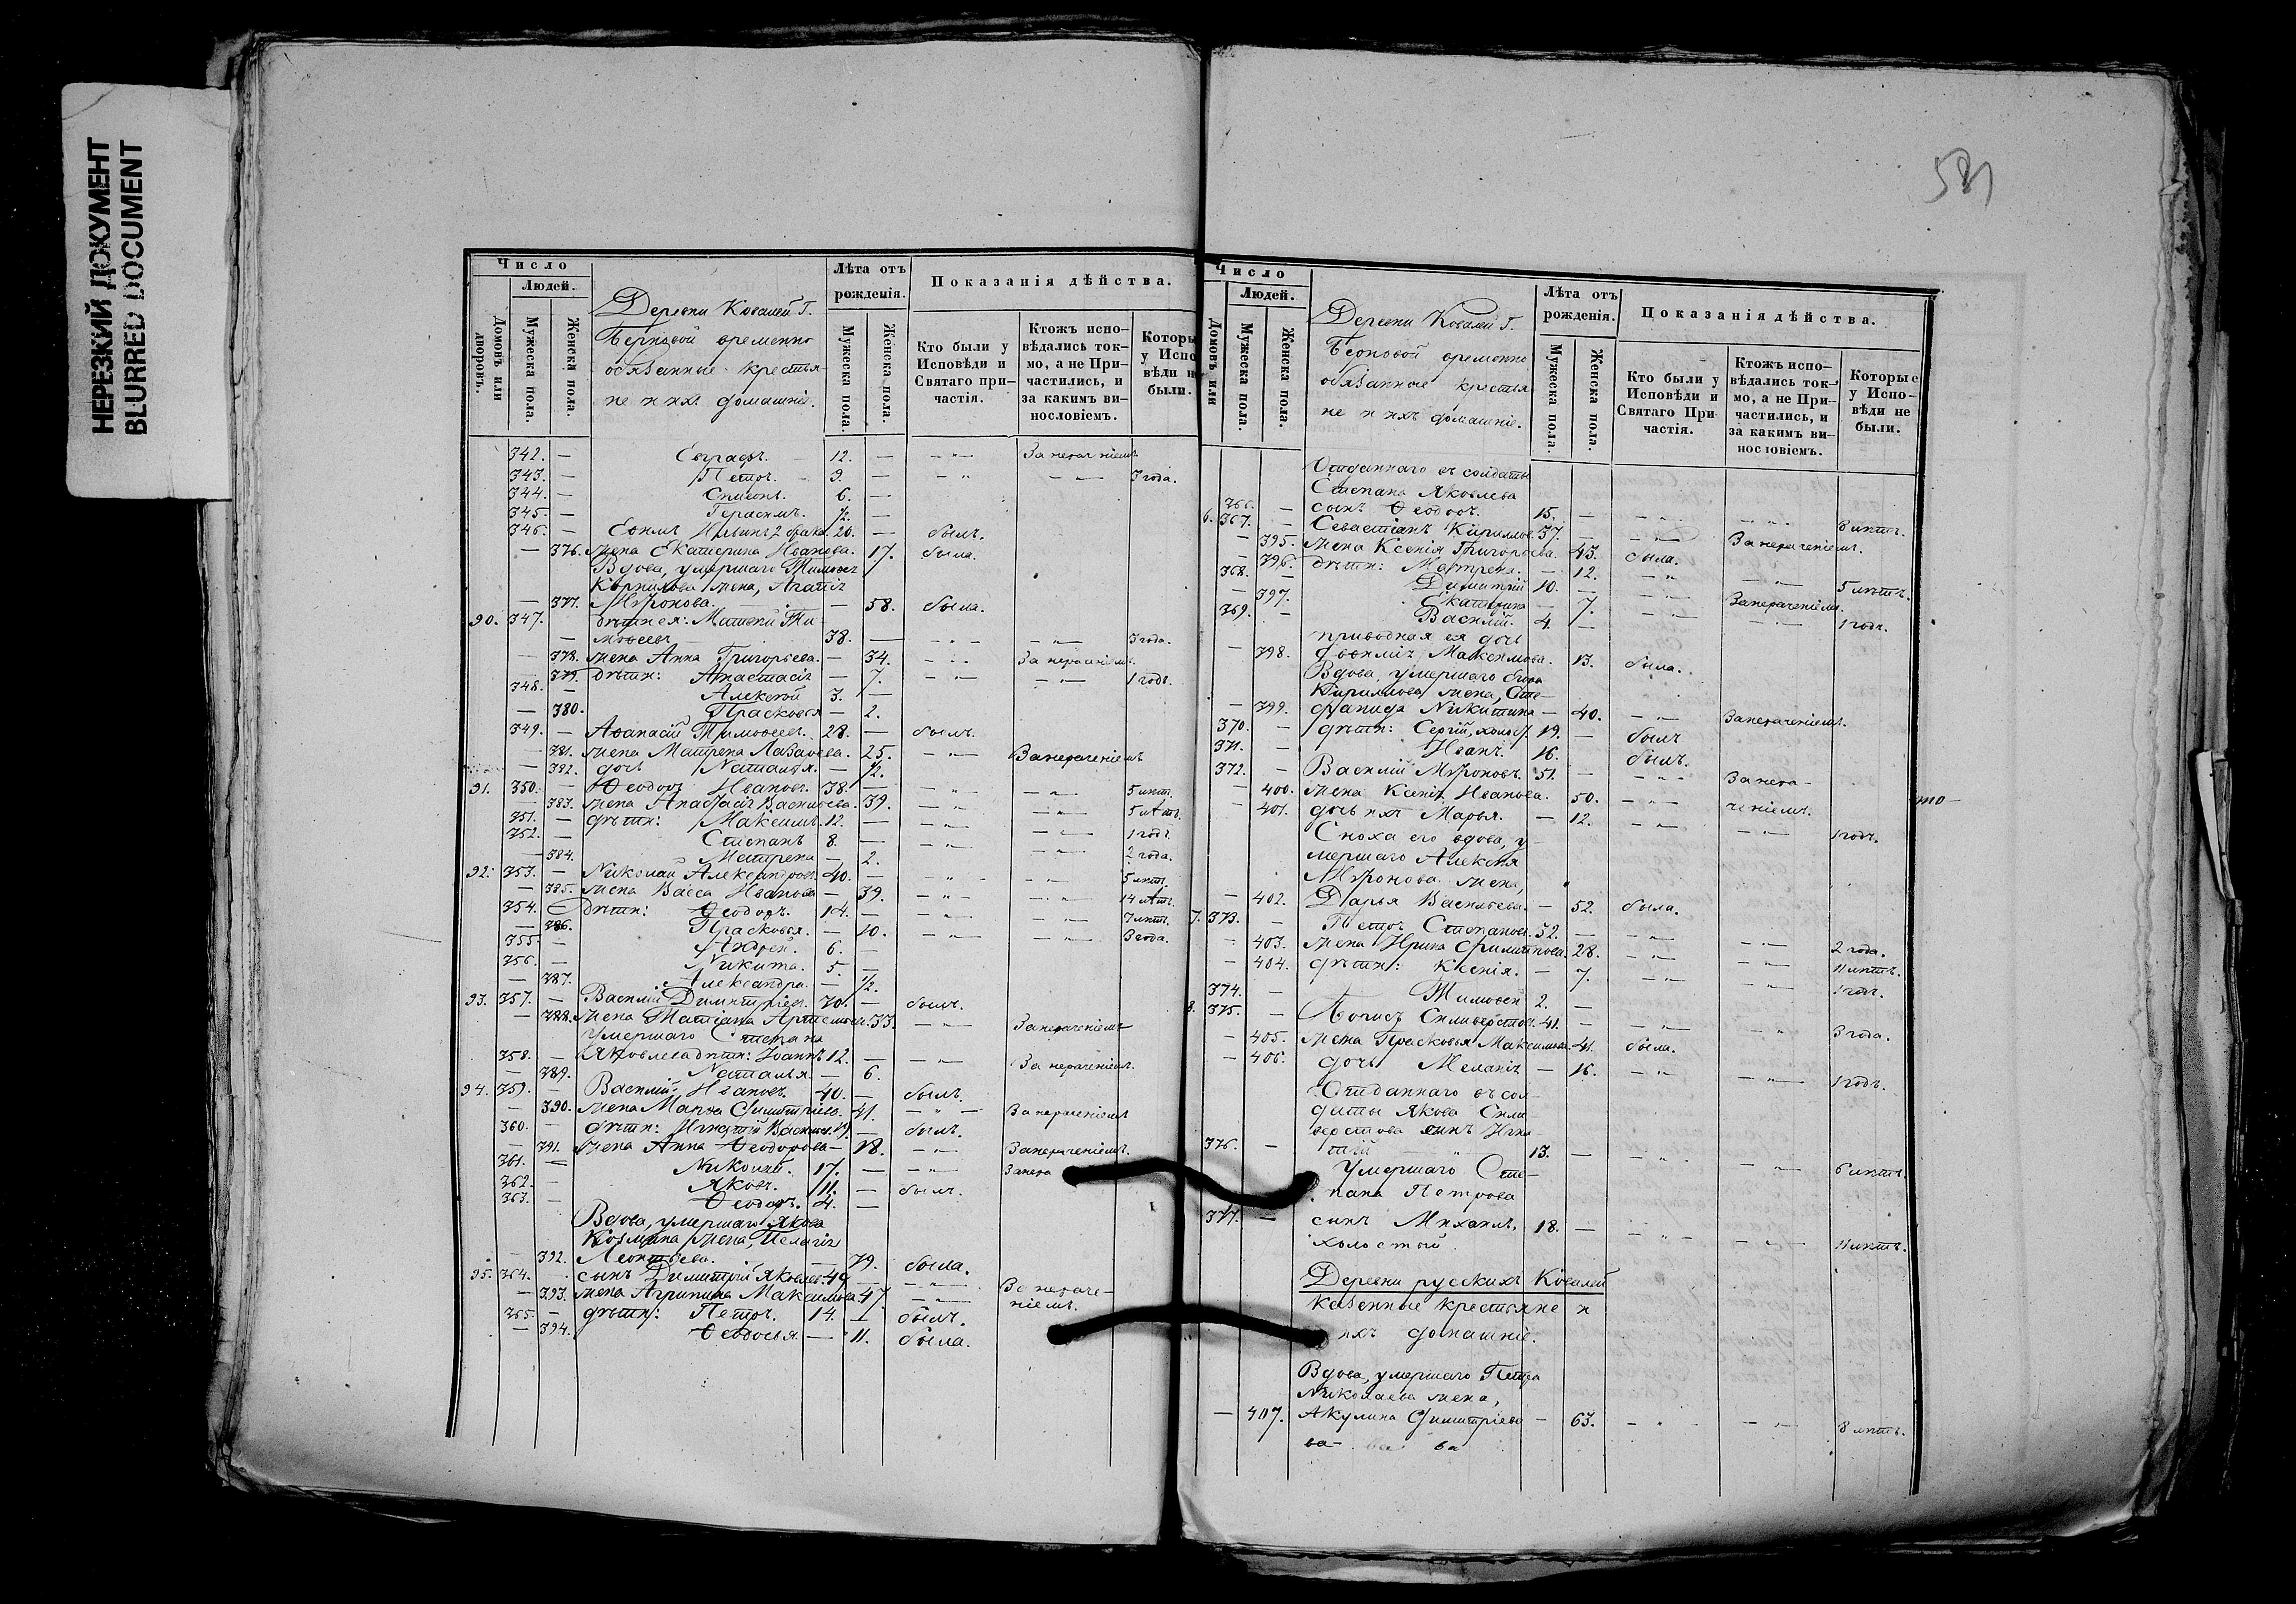 НЕРЕЗКИЙ ДОКУМЕНТ
BLURRED DOCUMENT
581
Число
Людей.
Домовъ или дворовъ.
Мужеска пола.
Женска пола.
Деревни Ковалей Г.
Берновой временно
обязанные крестья-
не и ихъ домашніе.
Лѣта отъ рожденія.
Мужеска пола.
Женска пола.
Показанія дѣйства.
Кто были у Исповѣди и Святаго при-частія.
Ктожъ испо-вѣдались ток-мо, а не При-частились, и за какимъ ви-нословіемъ.
Которы у Испо вѣди н были.
342. — Евграфъ. 12. — — „ — За нераченіемъ
343. — Петръ. 9. — — „ — „ — 3 года.
344. — Симеонъ. 6. —
345. — Герасимъ. 1/2. —
346. — Ефимъ Ильинъ 2 брака 20. — былъ.
— 376. жена Екатерина Иванова. — 17. была.
Вдова, умершаго Тимофея
Корнилова жена, Агафія
— 377. Миронова. — 58. была.
90. 347. дѣти ея: Матвей Ти-
— мофеевъ 38. — — „ — — „ — 3 года.
— 378. жена Анна Григорьева. — 34. — „ — За нераченіемъ.
— 379. дѣти: Анастасія — 7. — „ — — „ — 1 годъ.
348. — Алексей 3. —
— 380. Прасковья — 2.
349. — Афанасій Тимофеевъ. 28. — былъ.
— 381. жена Матрена Лазарева. — 25. — „ — За нераченіемъ
— 382. дочь Наталья. — 1/2.
91. 350. — Феодоръ Ивановъ. 38. — — „ — — „ — 5 лѣтъ.
— 383. жена Анастасія Васильева. 39. — „ — — „ — 5 лѣтъ.
351. — дѣти: Максимъ. 12. — — „ — — „ — 1 годъ.
352. — Степанъ 8. — — „ — — „ — 2 года.
— 384. Матрена — 2.
92. 353. — Николай Александровъ. 40. — — „ — — „ — 5 лѣтъ.
— 385. жена Васса Иванова — 39. — „ — — „ — 14 лѣтъ.
354. — дѣти: Феодоръ. 14. — — „ — — „ — 7 лѣтъ.
— 386. Прасковья. — 10. — „ — — „ — 3 года.
355. — Андрей. 6. —
356. — Никита. 5. —
— 387. Александра. — 1/2.
93. 357. — Василій Димитріевъ. 30. — былъ.
— 388. жена Татіана Артемьева. 33. — „ — За нераченіемъ
Умершаго Степана
358. — Яковлева дѣти: Іоаннъ 12. — — „ — За нераченіемъ.
— 389. Наталья. — 6.
94. 359. — Василій Ивановъ. 40. — былъ.
— 390. жена Марфа Димитріева. 41. — „ — За нераченіемъ
360. — дѣти: Игнатій Васильев. 19. — былъ.
— 391. жена Анна Феодорова — 18. — „ — За нераченіемъ.
361. — Николай. 17. — — „ — За нера
362. — Яковъ. 11. — былъ.
363. — Феодоръ. 4. —
Вдова, умершаго Якова
Козмина жена, Пелагія
— 392. Леонтьева. — 79. была.
95. 364. сынъ Димитрій Яковлев. 49 — — „ —
— 393. жена Агрипина Максимова 47. — „ — За нераче-
ніемъ.
365. — дѣти: Петръ. 14. — былъ.
— 394. Феодосья. — 11. была.
Число
Людей.
Домовъ или
Мужеска пола.
Женска пола.
Деревни Ковалей Г.
Берновой временно
обязанные крестья
не и ихъ домашніе.
Лѣта отъ рожденія.
Мужеска пола.
Женска пола
Показанія дѣйства.
Кто были у Исповѣди и Святаго При частія.
Ктожъ испо-вѣдались ток-мо, а не При-частились, и за какимъ ви-нословіемъ.
Которые у Испо-вѣди не были.
Отданнаго въ солдаты
Степана Яковлева
366. — сынъ Феодоръ. 15. — — „ — — „ — 8 лѣтъ.
6. 367. — Севастіанъ Кирилловъ. 37. — — „ — За нераченіемъ.
— 395. жена Ксенія Григорьева. — 43. была.
— 396. дѣти: Матрена. — 12. — „ — — „ — 5 лѣтъ.
368. — Димитрій 10. — — „ — За нераченіемъ.
— 397. Екатерина — 7. — „ — — „ — 1 годъ.
369. — Василій. 4. —
приводная ея дочь
— 398. Евфимія Максимова. 13. была.
Вдова, умершаго
Кириллова жена, Сте-
— 399. фанида Никитина — 40. — „ — За нераченіемъ.
370. — дѣти: Сергій, холост. 19. — былъ
371. — Иванъ. 16. былъ.
372. — Василій Мироновъ. 51. — — „ — За нера-
— 400. жена Ксенія Иванова. 50. — „ — ченіемъ.
— 401. дочь ихъ Марья. — 12. — „ — — „ — 1 годъ.
Сноха его вдова, у-
мершаго Алексея
Миронова жена,
— 402. Дарья Васильева. — 52. была.
7. 373. — Петръ Степановъ. 32. — — „ — — „ — 2 года.
— 403. жена Ирина Филиппова. 28. — „ — — „ — 11 лѣтъ.
— 404. дѣти: Ксенія. — 7. — „ — — „ — 1 годъ.
374. — Тимофей 2. —
8. 375. — Борисъ Сильверстов. 41. — — „ — — „ — 3 года.
— 405. жена Прасковья Максимова. 41. была.
— 406. дочь Меланія — 16. — „ — — „ — 1 годъ.
Отданнаго въ сол-
даты Якова Силь
верстова сынъ Игна
376. — тій 13. — — „ — — „ — 6 лѣтъ.
Умершаго Сте-
пана Петрова
377. — сынъ Михаилъ, 18. — — „ — — „ — 11 лѣтъ.
холостой.
Деревни русскихъ Ковалей
казенные крестьяне и
ихъ домашніе.
Вдова, умершаго Петра
Николаева жена,
— 407. Акулина Димитріева — 63. — „ — — „ — 8 лѣтъ.
ва- ва ва